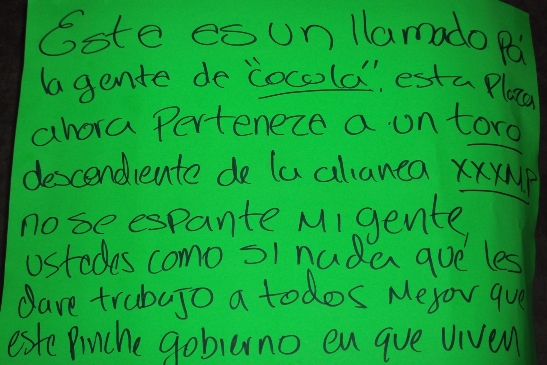 Este es un llamado Pá
la gente de "cocula". esta Plaza
ahora Perteneze a un toro
descendiente de la alianza XXXM.P
no se espante Mi gente,
ustedes como si nada qué les
dare trabajo a todos Mejor que
este Pinche gobierno en que viven